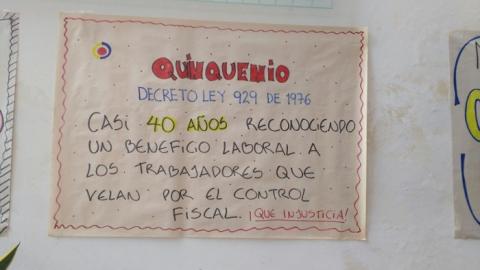 QUINQUENIO
DECRETO LEY 929 DE 1976
CASI 40 AÑOS RECONOCIENDO
UN BENEFICIO LABORAL A
LOS TRABAJADORES QUE
VELAN POR EL CONTROL
FISCAL. ¡QUE INJUSTICIA!